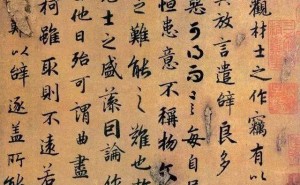 觀材士之作竊有以
其放言遣辭良多
惡可得而言每自
恒患意不稱物文
之難能之難也
士之盛藻因論作
他日殆可謂曲盡
柯雖取則不遠若
難以辭逮蓋所能